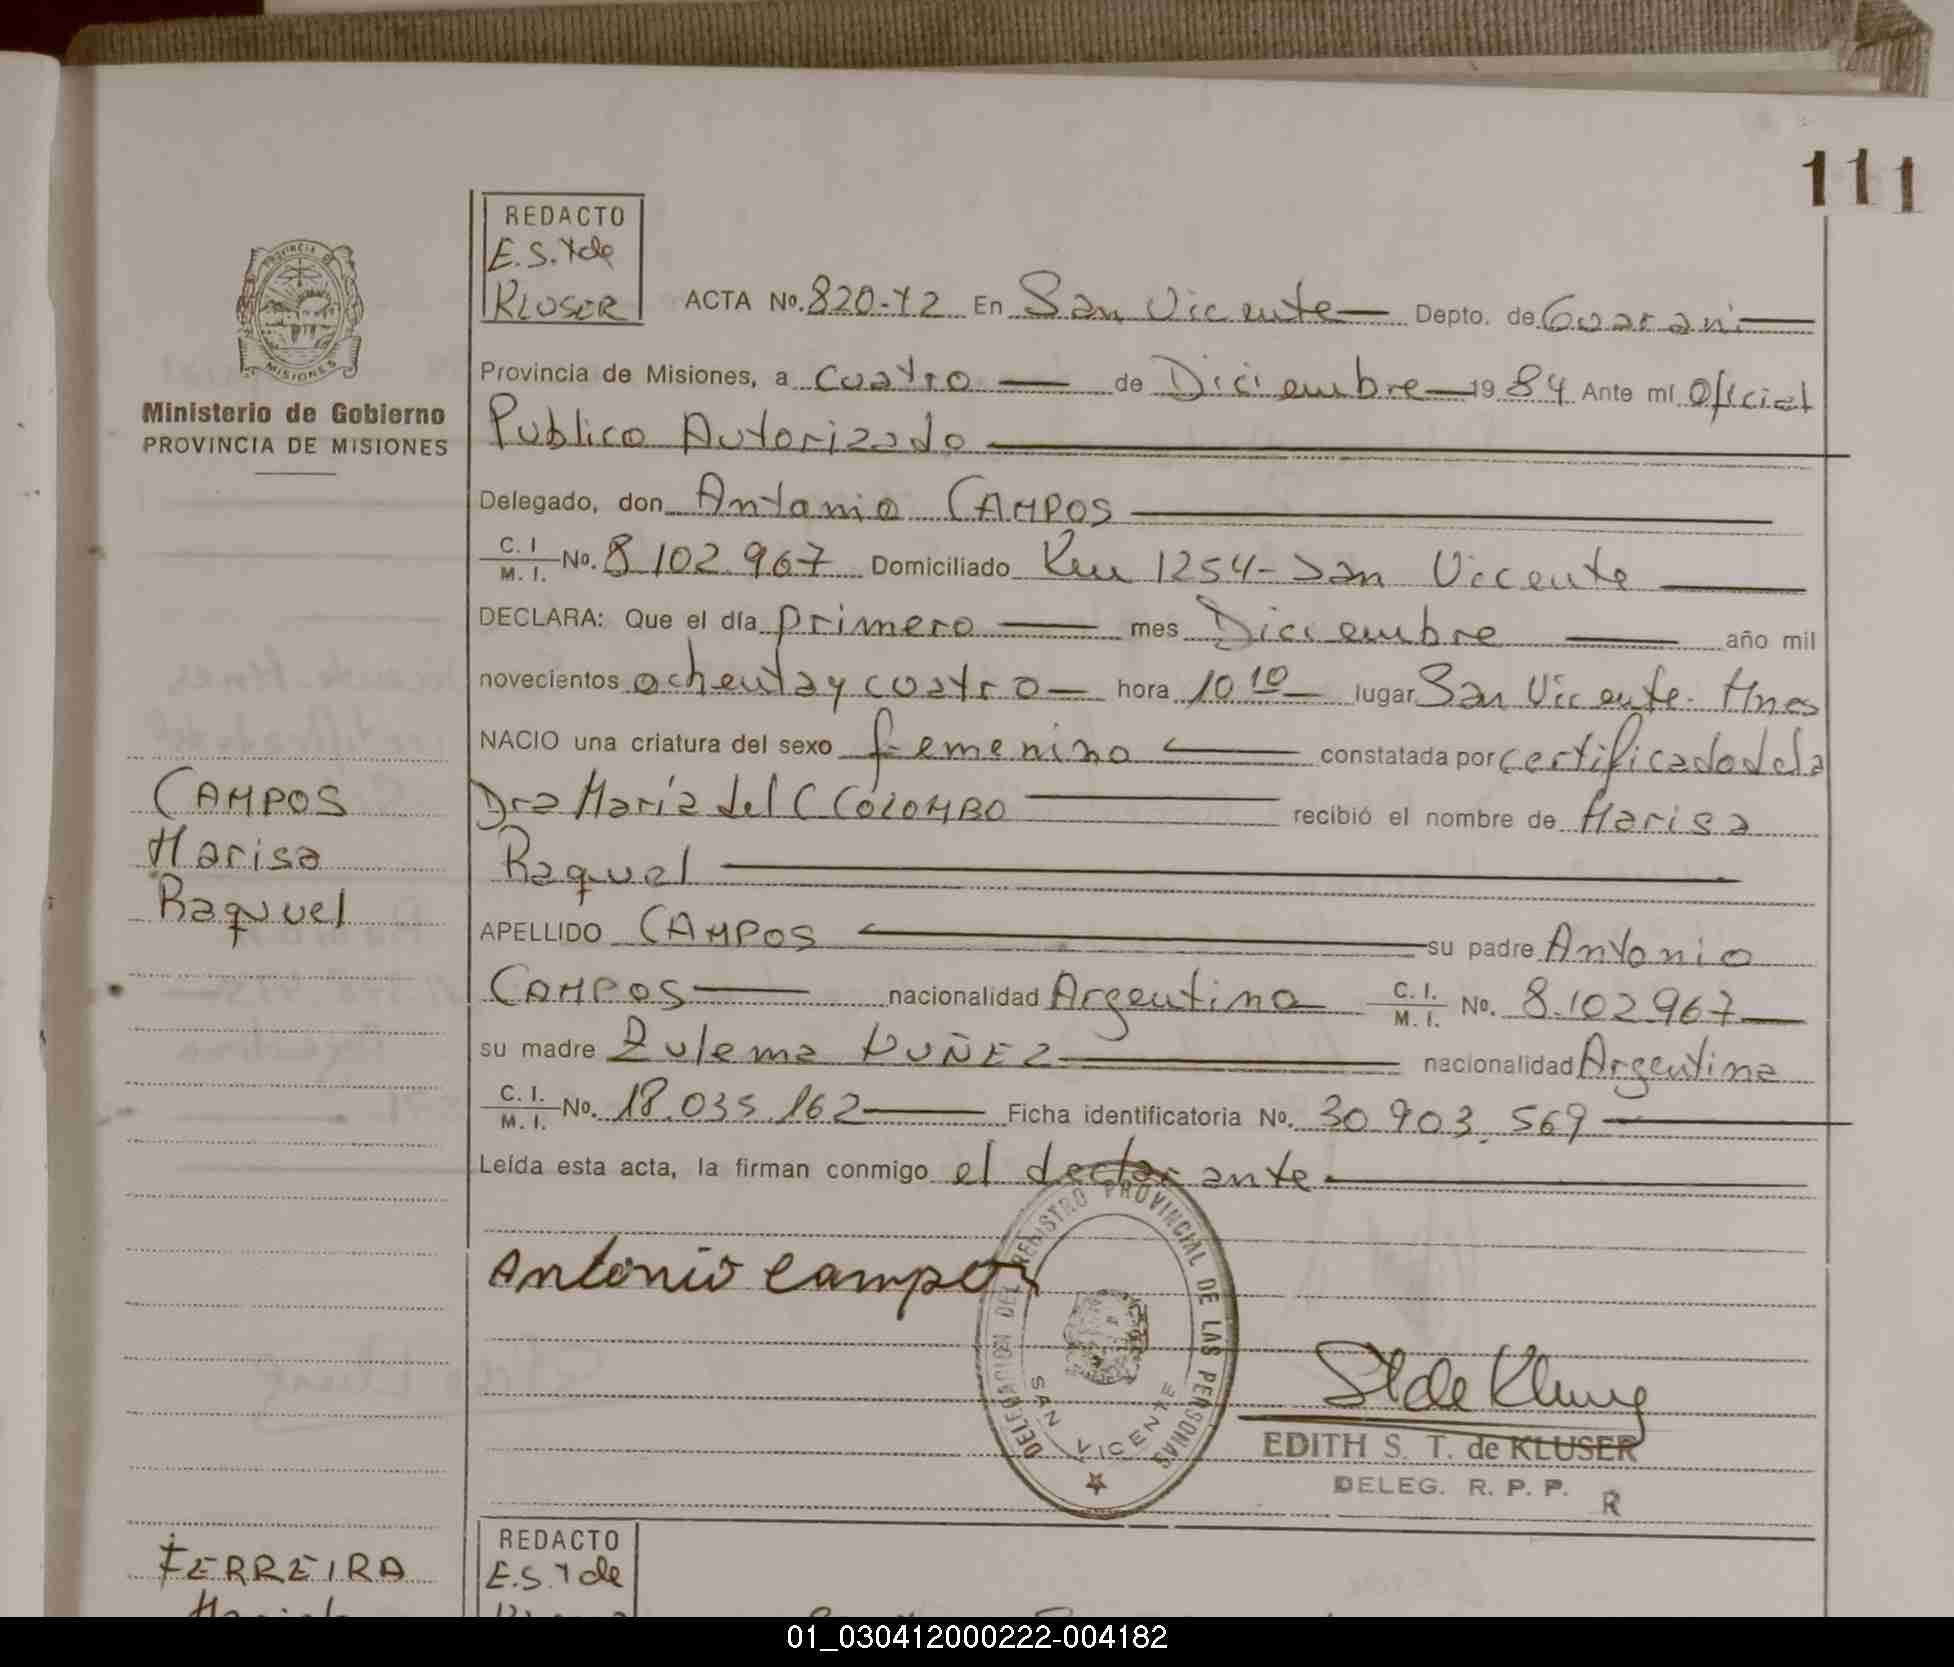 111
REDACTO
E.S.T de
KLUSER
PROVINCIA DE
MISIONES
Ministerio de Gobierno
PROVINCIA DE MISIONES
ACTA No. 820-T2 En San Vicente Depto. de Guarani
Provincia de Misiones, a cuatro de Diciembre 1984 Ante mí Oficial
Publico Autorizado
Delegado, don Antonio CAMPOS
C. I. / M. I. No. 8.102.967 Domiciliado Km 1254 - San Vicente
DECLARA: Que el día primero mes Diciembre año mil
novecientos ochenta y cuatro hora 10 10 lugar San Vicente. Mnes
NACIO una criatura del sexo femenino constatada por certificado de la
Dra María del C COLOMBO recibió el nombre de Marisa
Raquel
CAMPOS
Marisa
Raquel
APELLIDO CAMPOS su padre Antonio
CAMPOS nacionalidad Argentina C. I. / M. I. No. 8.102.967
su madre Zulema NUÑEZ nacionalidad Argentina
C. I. / M. I. No. 18.035.162 Ficha identificatoria No. 30.903.569
Leída esta acta, la firman conmigo el declarante
Antonio Campos
DELEGACION DEL REGISTRO PROVINCIAL DE LAS PERSONAS
SAN VICENTE
EDITH S. T. de KLUSER
DELEG. R. P. P.
R
FERREIRA
REDACTO
E.S.T de
01_030412000222-004182